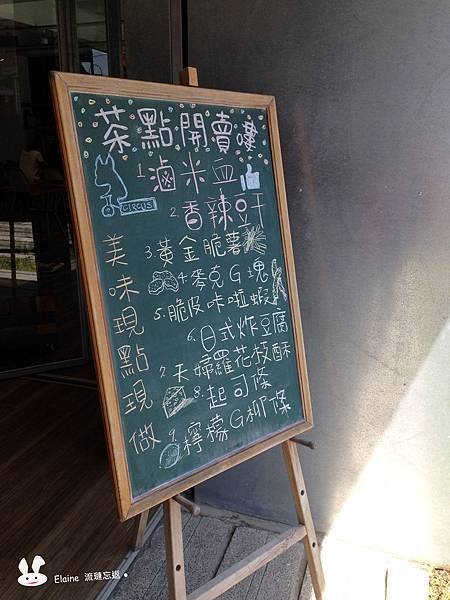 茶點開賣嘍
1.滷米血
CIRCUS
2.香辣豆干
3.黃金脆薯
4.麥克G塊
5.脆皮咔啦蝦
6.日式炸豆腐
7.天婦羅花枝酥
8.起司條
9.檸檬G柳條
美味現點現做
Elaine 流璉忘返